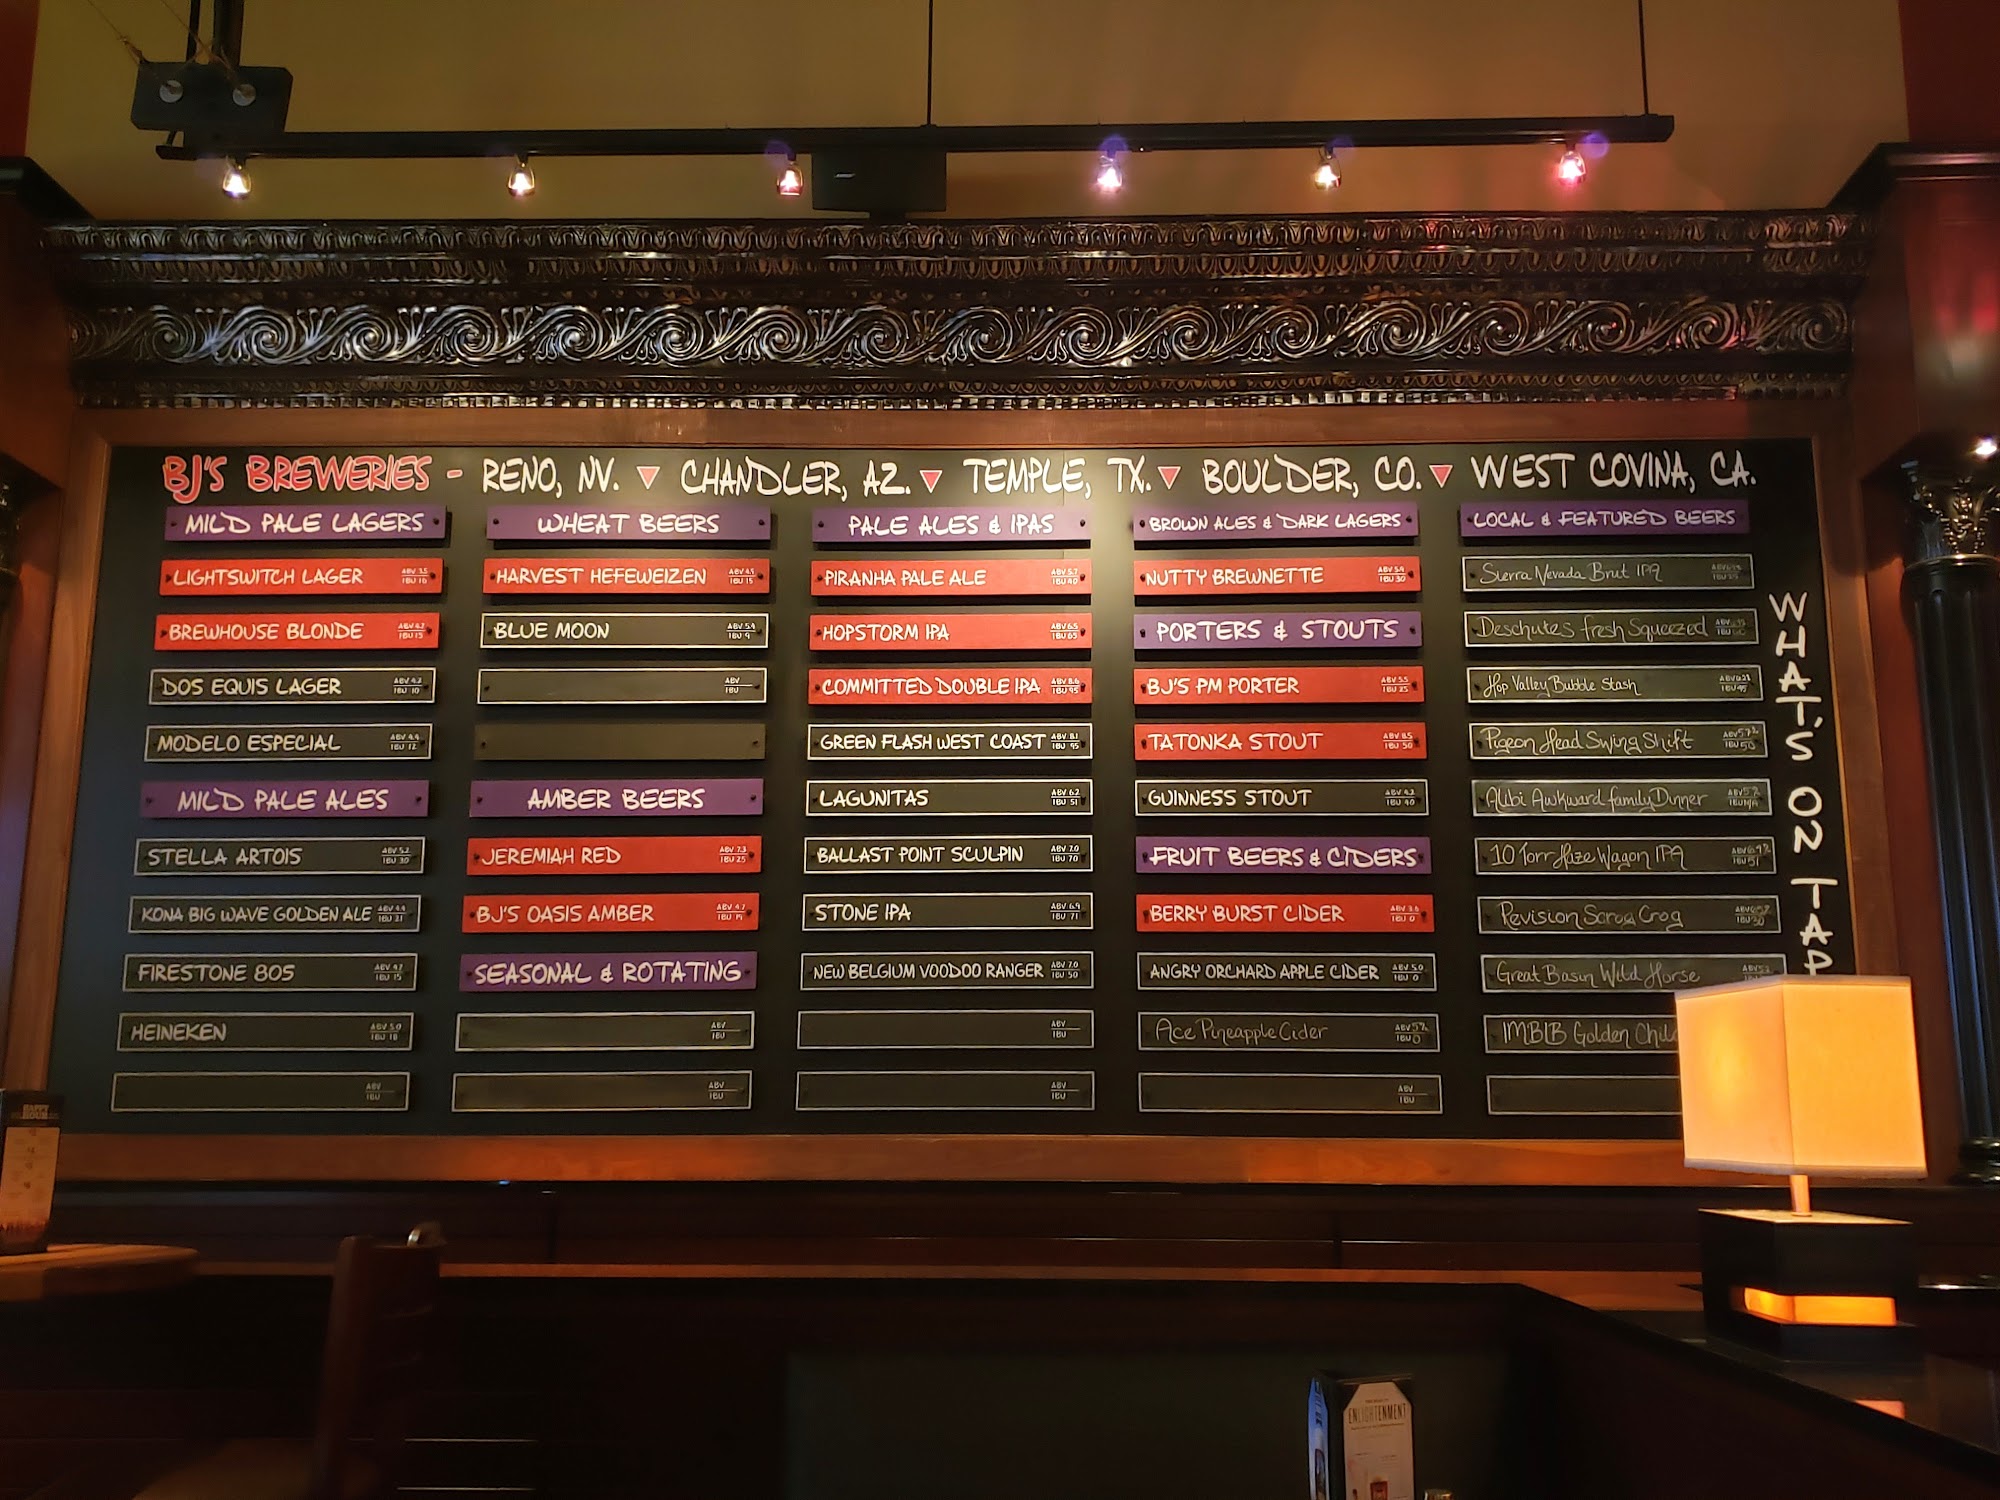 BJ'S BREWERIES - RENO, NV. ▼ CHANDLER, AZ. ▼ TEMPLE, TX. ▼ BOULDER, CO. ▼ WEST COVINA, CA.
MILD PALE LAGERS
LIGHTSWITCH LAGER ABV 3.5 IBU 16
BREWHOUSE BLONDE ABV 4.7 IBU 15
DOS EQUIS LAGER ABV 4.2 IBU 10
MODELO ESPECIAL ABV 4.4 IBU 12
MILD PALE ALES
STELLA ARTOIS ABV 5.2 IBU 30
KONA BIG WAVE GOLDEN ALE ABV 4.4 IBU 21
FIRESTONE 805 ABV 4.7 IBU 15
HEINEKEN ABV 5.0 IBU 18
ABV IBU
WHEAT BEERS
HARVEST HEFEWEIZEN ABV 4.9 IBU 15
BLUE MOON ABV 5.4 IBU 9
ABV IBU
AMBER BEERS
JEREMIAH RED ABV 7.3 IBU 25
BJ'S OASIS AMBER ABV 4.7 IBU 19
SEASONAL & ROTATING
ABV IBU
ABV IBU
PALE ALES & IPAS
PIRANHA PALE ALE ABV 5.7 IBU 40
HOPSTORM IPA ABV 6.5 IBU 65
COMMITTED DOUBLE IPA ABV 8.6 IBU 95
GREEN FLASH WEST COAST ABV 8.1 IBU 95
LAGUNITAS ABV 6.2 IBU 51
BALLAST POINT SCULPIN ABV 7.0 IBU 70
STONE IPA ABV 6.9 IBU 71
NEW BELGIUM VOODOO RANGER ABV 7.0 IBU 50
ABV IBU
ABV IBU
BROWN ALES & DARK LAGERS
NUTTY BREWNETTE ABV 5.9 IBU 30
PORTERS & STOUTS
BJ'S PM PORTER ABV 5.5 IBU 25
TATONKA STOUT ABV 8.5 IBU 50
GUINNESS STOUT ABV 4.2 IBU 40
FRUIT BEERS & CIDERS
BERRY BURST CIDER ABV 3.8 IBU 0
ANGRY ORCHARD APPLE CIDER ABV 5.0 IBU 0
Ace Pineapple Cider ABV 5% IBU 0
ABV IBU
LOCAL & FEATURED BEERS
Sierra Nevada Brut IPA ABV IBU
Deschutes fresh Squeezed ABV IBU
Hop Valley Bubble Stash ABV IBU
Pigeon Head Swing Shift ABV IBU 50
Alibi Awkward family Dinner ABV 5% IBU N/A
10 Torr Haze Wagon IPA ABV IBU 51
Revision Scrog Crog ABV IBU 30
Great Basin Wild Horse ABV
IMBIB Golden Chil
WHAT'S ON TAP
HAPPY HOUR
ENLIGHTENMENT